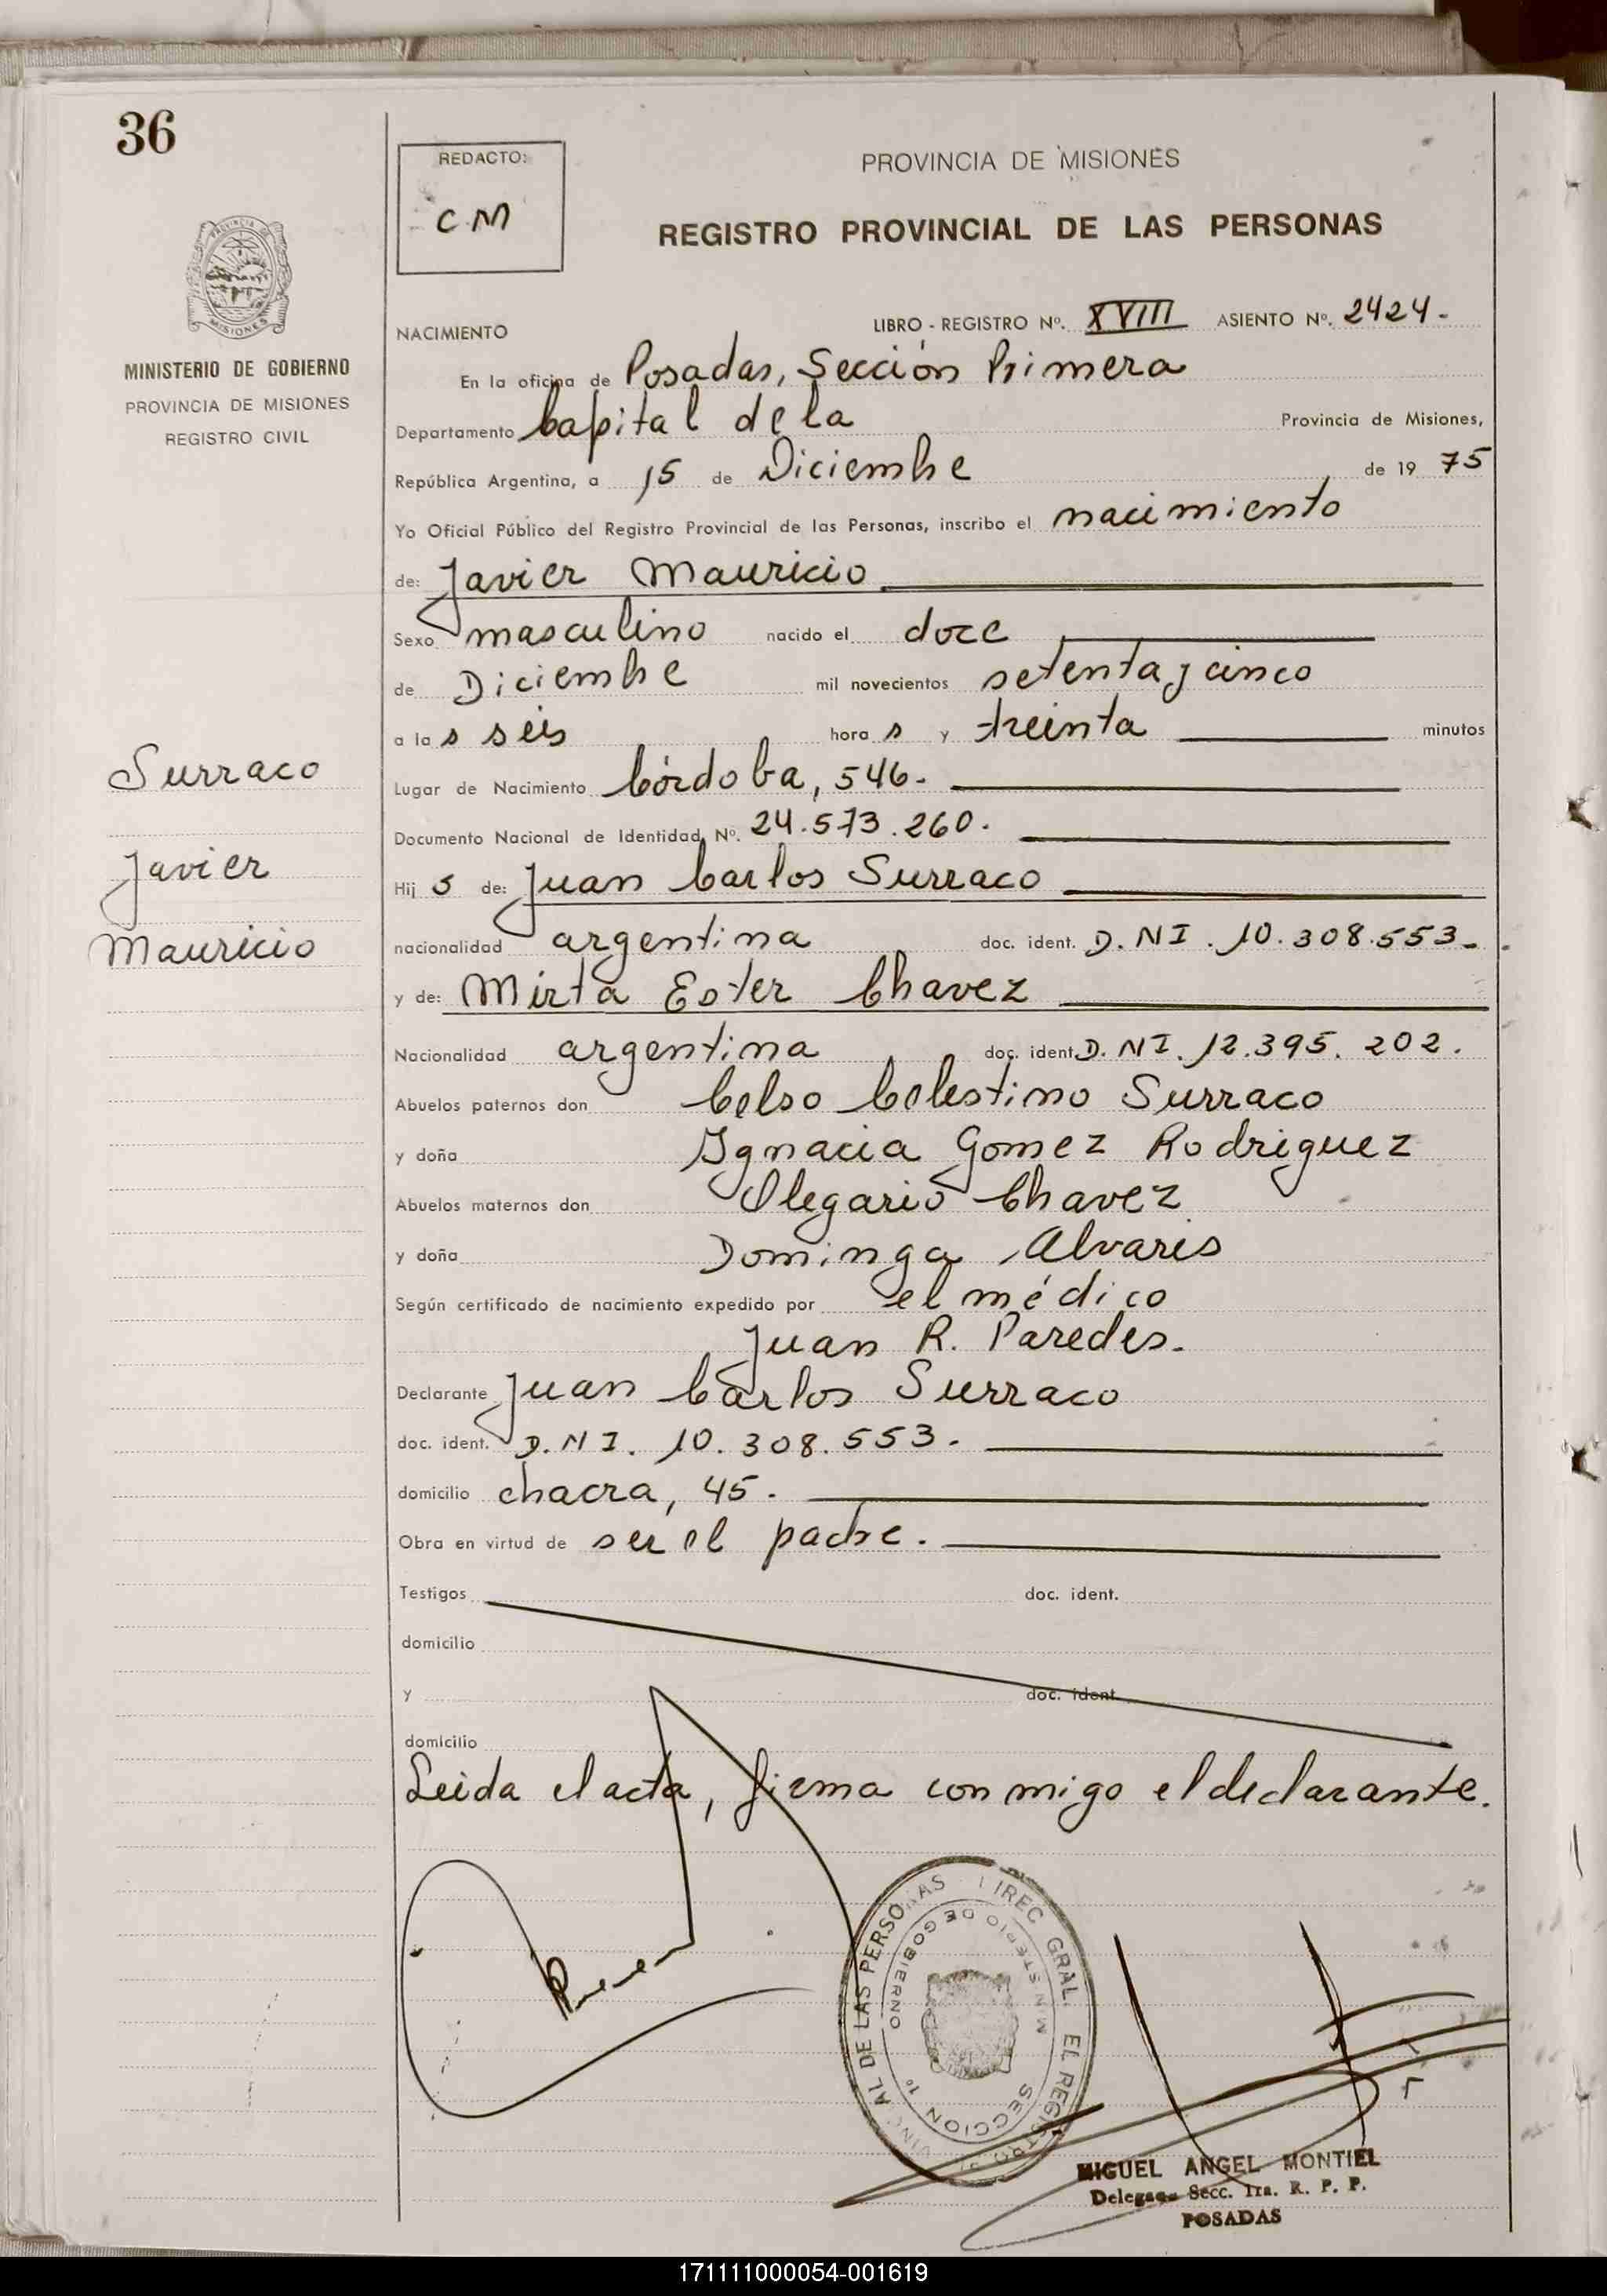 36
REDACTO:
C.M
PROVINCIA DE MISIONES
REGISTRO PROVINCIAL DE LAS PERSONAS
MISIONES
MINISTERIO DE GOBIERNO
PROVINCIA DE MISIONES
REGISTRO CIVIL
NACIMIENTO
LIBRO - REGISTRO Nº. XVIII ASIENTO Nº. 2424.
En la oficina de Posadas, Sección Primera
Departamento Capital de la Provincia de Misiones,
República Argentina, a 15 de Diciembre de 19 75
Yo Oficial Público del Registro Provincial de las Personas, inscribo el nacimiento
de: Javier Mauricio
Sexo masculino nacido el doce
de Diciembre mil novecientos setenta y cinco
a la s seis hora s y treinta minutos
Surraco
Lugar de Nacimiento Córdoba, 546.
Documento Nacional de Identidad Nº. 24.573.260.
Javier
Hij o de: Juan Carlos Surraco
Mauricio
nacionalidad argentina doc. ident. D. NI. 10.308.553.
y de: Mirta Ester Chavez
Nacionalidad argentina doc. ident. D. NI. 12.395.202.
Abuelos paternos don Celso Celestino Surraco
y doña Ignacia Gomez Rodriguez
Abuelos maternos don Olegario Chavez
y doña Dominga Alvaris
Según certificado de nacimiento expedido por el médico
Juan R. Paredes.
Declarante Juan Carlos Surraco
doc. ident. D. NI. 10.308.553.
domicilio chacra, 45.
Obra en virtud de ser el padre.
Testigos doc. ident.
domicilio
y doc. ident.
domicilio
Leida el acta, firma conmigo el declarante.
DIREC GRAL. EL REGISTRO AL DE LAS PERSONAS
MINISTERIO DE GOBIERNO
SECCION 1º
MIGUEL ANGEL MONTIEL
Delegado Secc. 1ra. R. P. P.
POSADAS
171111000054-001619